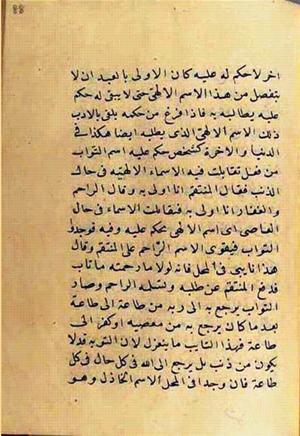 ٤٤
اخر لاحكم له عليه كان الاولى بالعبد ان لا
ينفصل من هذا الاسم الالهى حتى لا يبقى له حكم
عليه يطالبه به فاذا فرغ من حكمه يلقى بالادب
ذلك الاسم الالهى الذى يطلبه ايضا هكذا فى
الدنيا والاخرة كشخص حكم عليه اسم التواب
من فعل تقابلت فيه الاسماء الالهيه فى حال
الذنب فقال المنتقم انا اولى به وقال الراحم
والغفار انا اولى به فتقابلت الاسماء فى حال
العاصى اى اسم الالهى يحكم عليه وفيه فوجدوا
التواب فيقوى الاسم الراحم على المنتقم وقال
هذا نايبى فى المحل فانه لولا ما رحمته ما تاب
فدفع المنتقم عن طلبه وتسلمه الراحم وصار
التواب يرجع به الى ربه من طاعة الى طاعة
بعد ما كان يرجع به من معصيه او كفر الى
طاعة فهذا التايب ما ينعزل لان التوبه قد لا
يكون من ذنب بل يرجع الى الله فى كل حال فى كل
طاعة فان وجد فى المحل الاسم الخاذل وهو